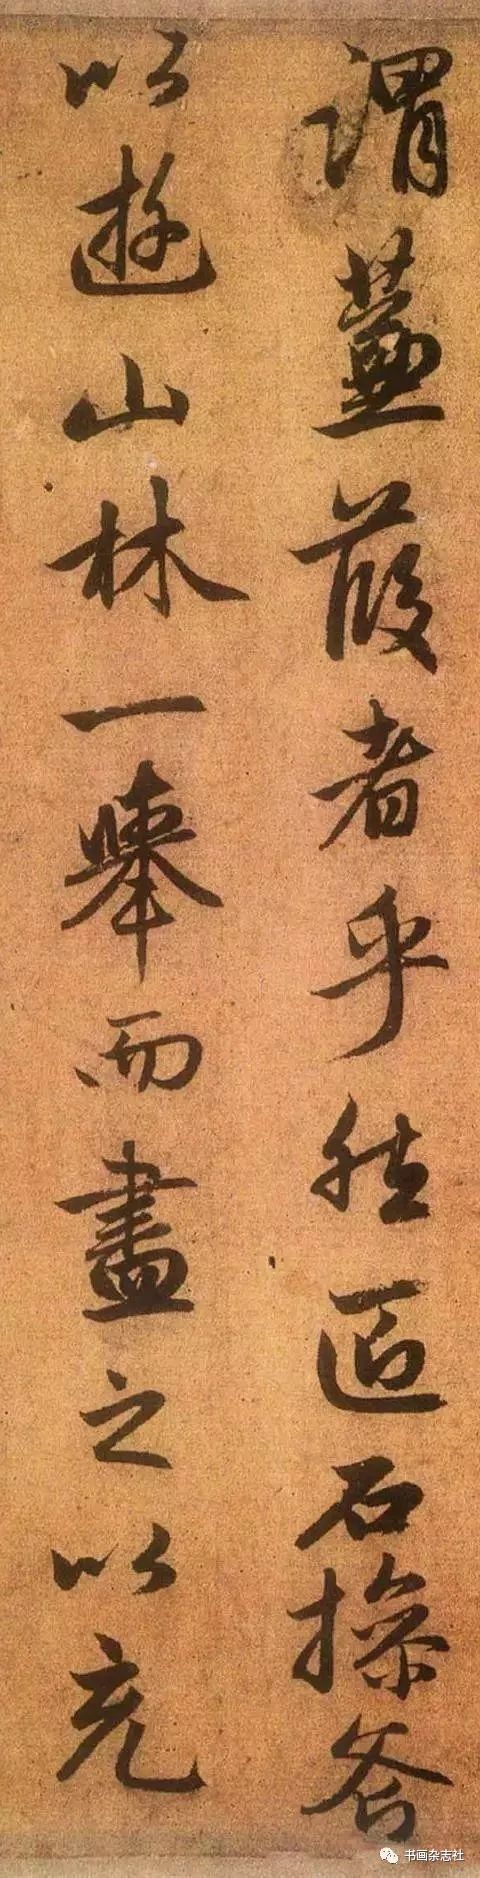 謂蒹葭者乎然匠石操斧
以遊山林一舉而盡之以充
书画杂志社